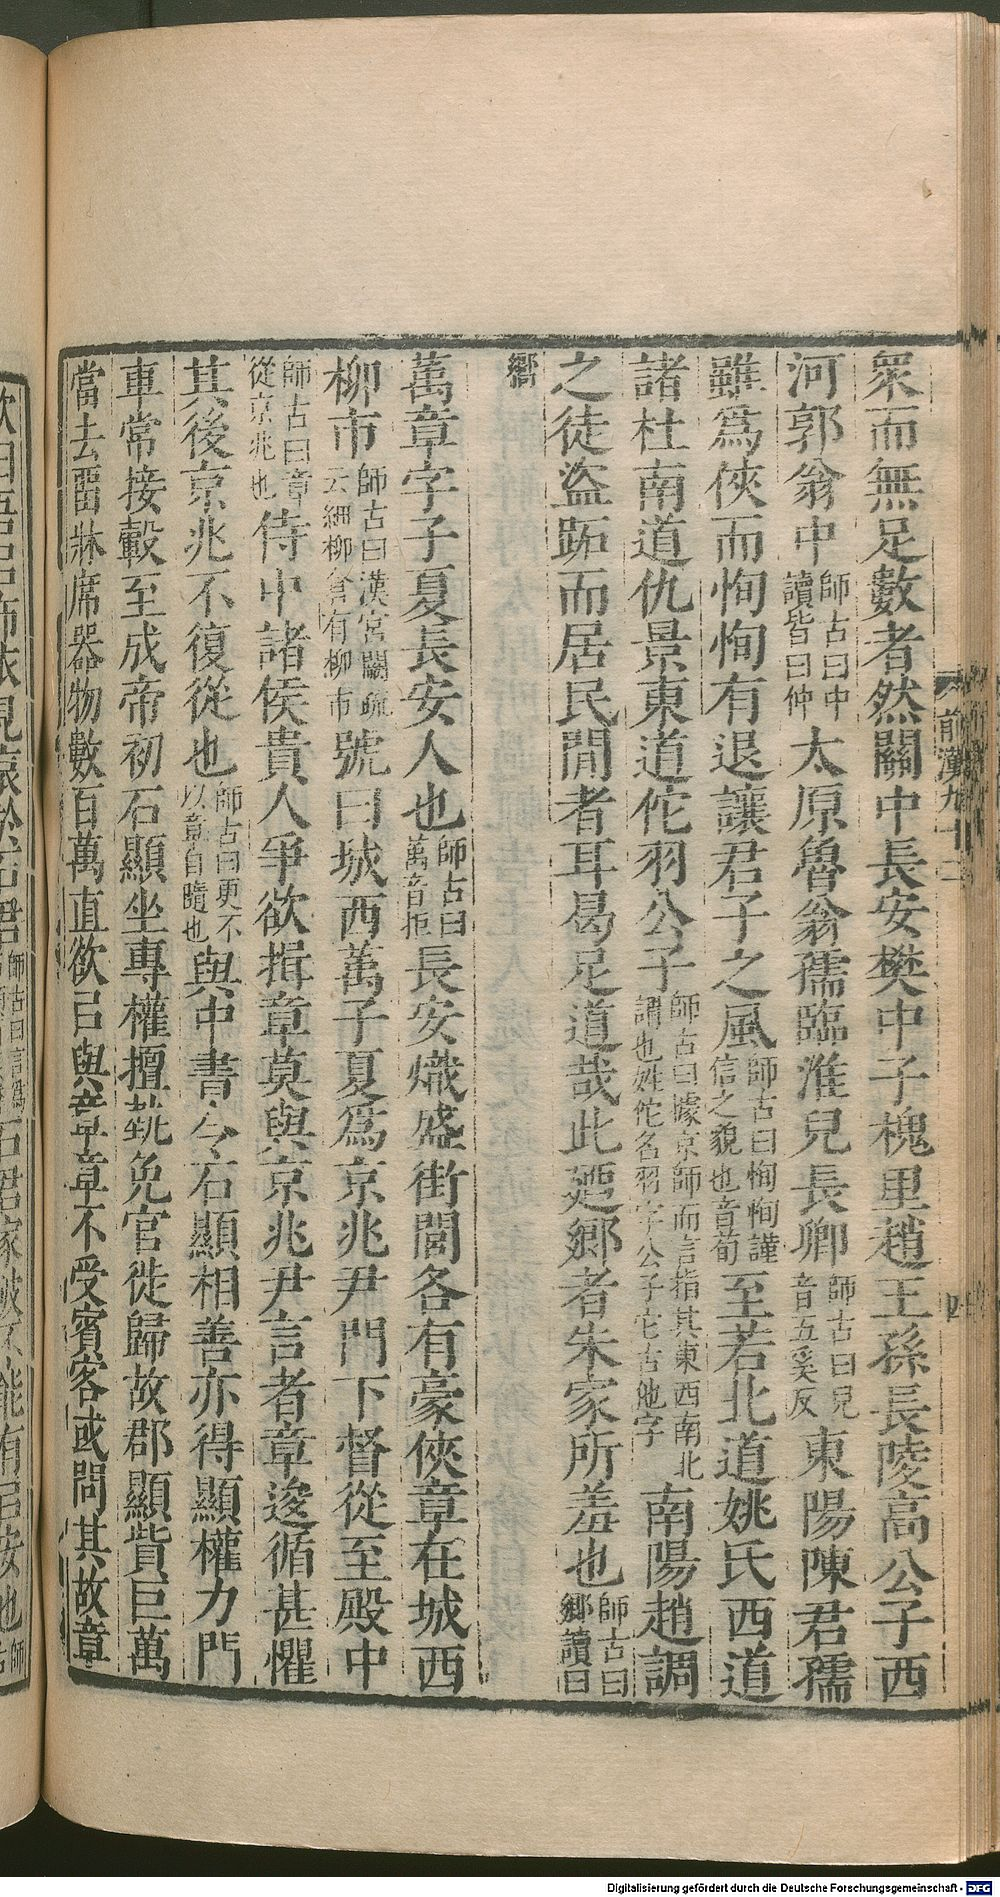 衆而無足數者然關中長安樊中子槐里趙王孫長陵高公子西
河郭翁中師古曰中讀皆曰仲太原魯翁孺臨淮兒長卿師古曰兒音五奚反東陽陳君孺
雖爲俠而恂恂有退讓君子之風師古曰恂恂謹信之貌也音荀至若北道姚氏西道
諸杜南道仇景東道佗羽公子師古曰據京師而言指其東西南北謂也姓佗名羽字公子它古他字南陽趙調
之徒盜跖而居民閒者耳曷足道哉此廼鄉者朱家所羞也師古曰鄉讀曰
嚮
萬章字子夏長安人也師古曰萬音拒長安熾盛街閭各有豪俠章在城西
柳市師古曰漢宮闕疏云細柳倉有柳市號曰城西萬子夏爲京兆尹門下督從至殿中
師古曰章從京兆也侍中諸侯貴人爭欲揖章莫與京兆尹言者章逡循甚懼
其後京兆不復從也師古曰更不以章自隨也與中書令石顯相善亦得顯權力門
車常接轂至成帝初石顯坐專權擅埶免官徙歸故郡顯貲巨萬
當去畱牀席器物數百萬直欲㠯與章章不受賓客或問其故章
前漢九十二
四
Digitalisierung gefördert durch die Deutsche Forschungsgemeinschaft - DFG